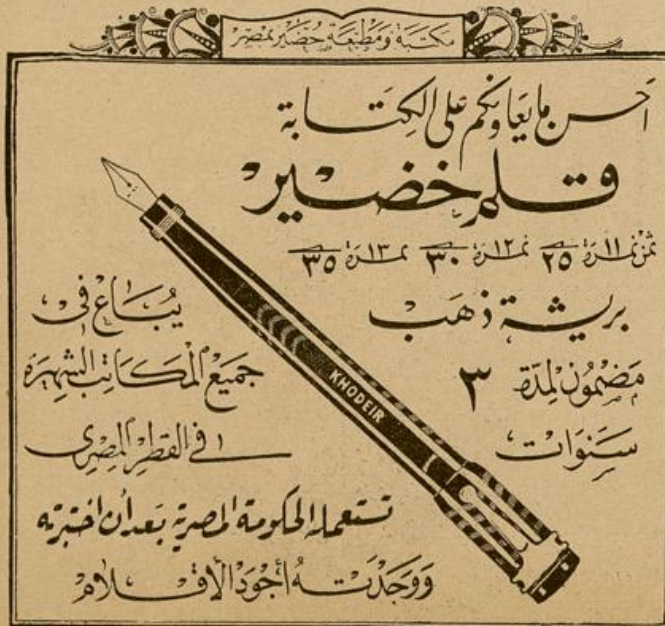 مكتبة ومطبعة خضير بمصر
أحسن ما يعاونكم على الكتابة
قلم خضير
ثمن نمرة ١١ ٢٥ نمرة ١٢ ٣٠ نمرة ١٣ ٣٥
بريشة ذهب
مضمون لمدة ٣
سنوات
يُباع في
جميع المكاتب الشهيرة
في القطر المصرى
KHODEIR
تستعمله الحكومة المصرية بعد أن اختبرته
ووجدته أجود الأقلام